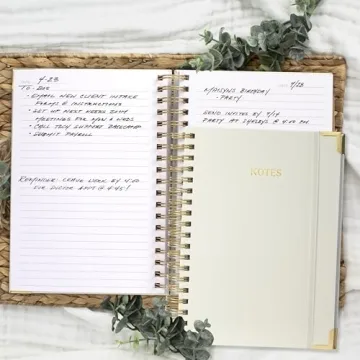 4-23
TO-DOS
- EMAIL NEW CLIENT INTAKE
FORMS & INSTRUCTIONS
- SET UP NEXT WEEKS ZOOM
MEETINGS FOR MON & WEDS
- CALL TECH SUPPORT
- SUBMIT PAYROLL
REMINDER: LEAVE WORK BY 4:00
FOR DOCTOR APPT @ 4:45!
7/23
BIRTHDAY
- PARTY
SEND INVITES BY 7/14
PARTY AT @ 4:00 PM
NOTES